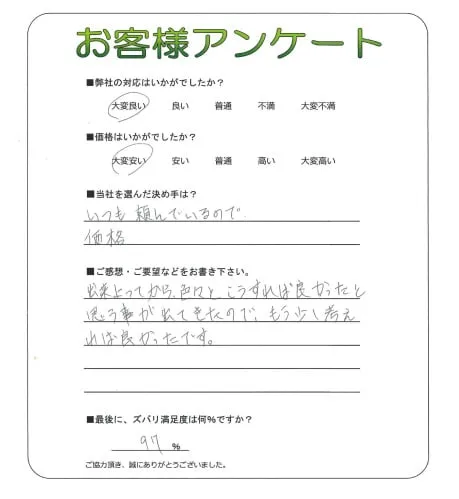 お客様アンケート
■弊社の対応はいかがでしたか？
大変良い 良い 普通 不満 大変不満
■価格はいかがでしたか？
大変安い 安い 普通 高い 大変高い
■当社を選んだ決め手は？
いつも頼んでいるので
価格
■ご感想・ご要望などをお書き下さい。
出来上ってから、色々と、こうすれば良かったと
思う事が出てきたので、もう少し考え
れば良かったです。
■最後に、ズバリ満足度は何％ですか？
97 ％
ご協力頂き、誠にありがとうございました。